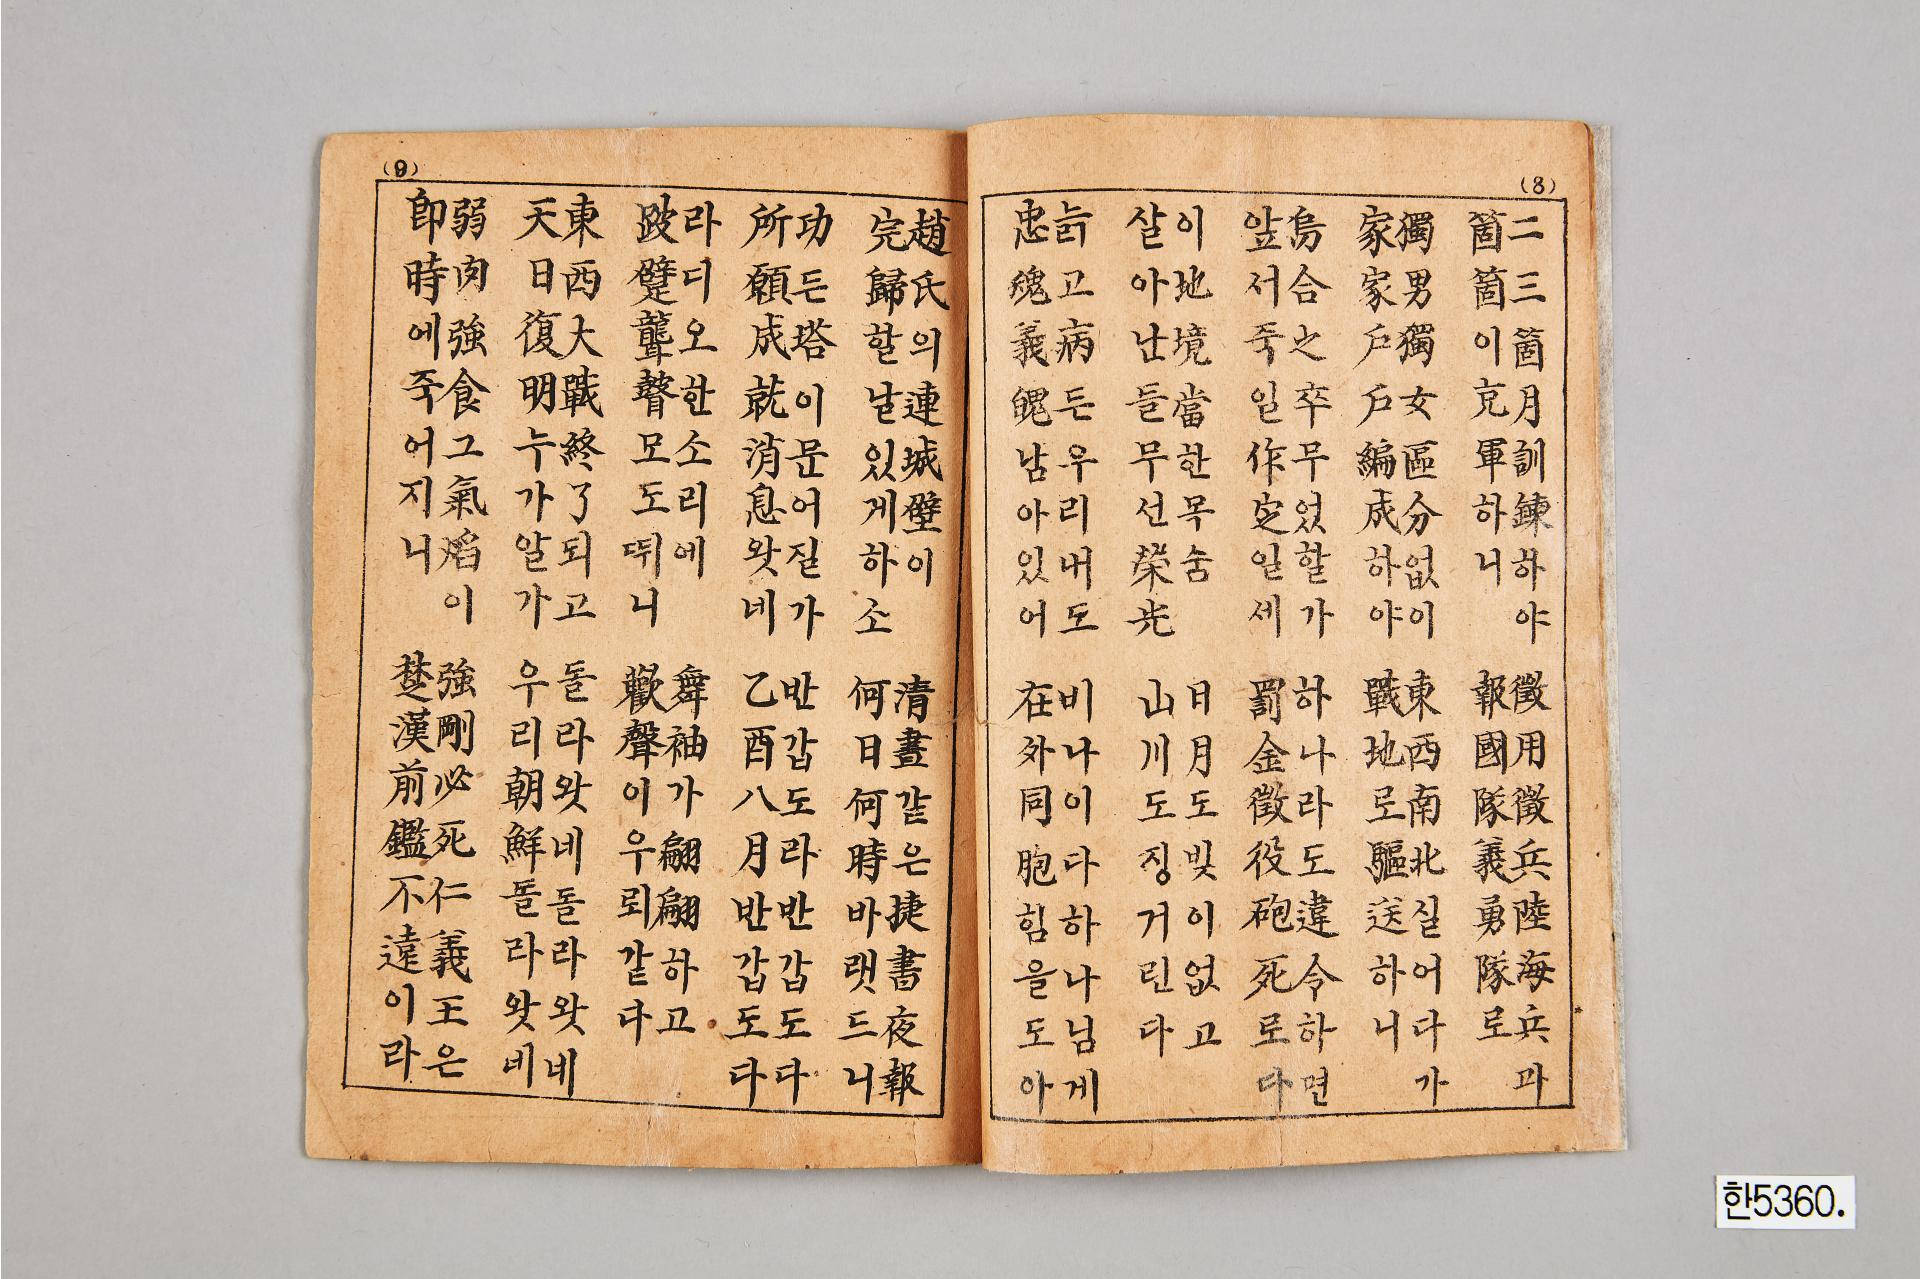 (8)
二三箇月訓鍊하야
箇箇이充軍하니
徵用徵兵陸海兵과
報國隊義勇隊로
獨男獨女區分없이
家家戶戶編成하야
東西南北실어다가
戰地로驅送하니
烏合之卒무엇할가
앞서죽일作定일세
하나라도違令하면
罰金徵役砲死로다
이地境當한목숨
살아난들무선榮光
日月도빛이없고
山川도징거린다
늙고病든우리내도
忠魂義魄남아있어
비나이다하나님게
在外同胞힘을도아
(9)
趙氏의連城璧이
完歸할날있게하소
清晝같은捷書夜報
何日何時바랫드니
功든塔이문어질가
所願成就消息왓네
반갑도라반갑도다
乙酉八月반갑도다
라디오한소리에
跛躄聾瞽모도뛰니
舞袖가翩翩하고
歡聲이우뢰같다
東西大戰終了되고
天日復明누가알가
돌라왓네돌라왓네
우리朝鮮돌라왓네
弱肉強食그氣焰이
卽時에죽어지니
強剛必死仁義王은
楚漢前鑑不遠이라
한5360.